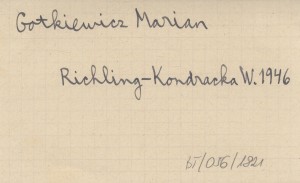 Gotkiewicz Marian
Richling-Kondracka W. 1946
bT/056/1821